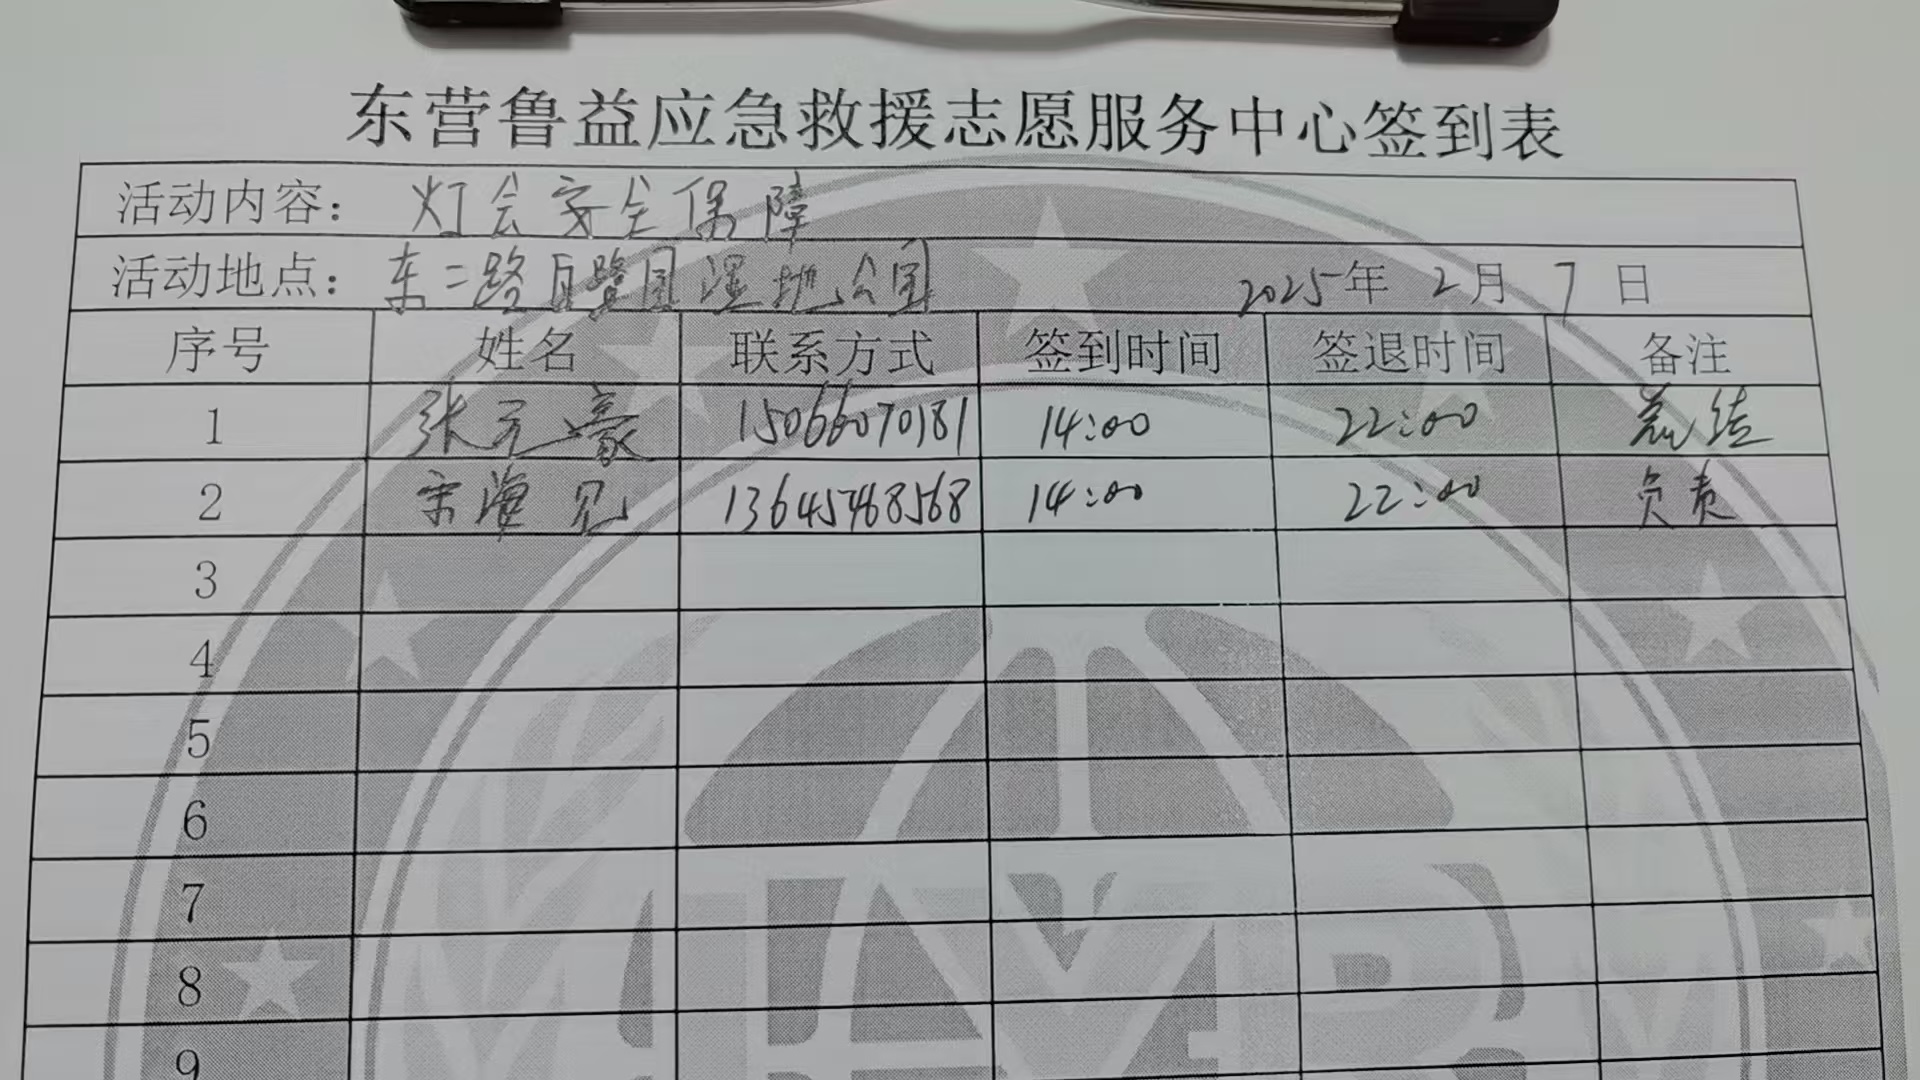 东营鲁益应急救援志愿服务中心签到表
活动内容： 灯会安全保障
活动地点： 东二路白鹭园湿地公园 2025年 2月 7日
序号 姓名 联系方式 签到时间 签退时间 备注
1 张元豪 15066070181 14:00 22:00
2 宋海 13645468568 14:00 22:00 负责
3
4
5
6
7
8
9